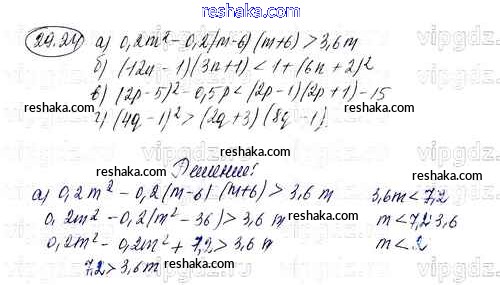 29.24 а) 0,2m² − 0,2(m−6)(m+6) > 3,6m
б) (12n − 1)(3n+1) < 1 + (6n + 2)²
в) (2p − 5)² − 0,5p < (2p − 1)(2p + 1) − 15
г) (4q − 1)² > (2q + 3)(8q − 1)
reshaka.com reshaka.com reshaka.com
Решение:
reshaka.com
а) 0,2m² − 0,2(m−6)(m+6) > 3,6m 3,6m < 7,2
0,2m² − 0,2(m² − 36) > 3,6m m < 7,2:3,6
0,2m² − 0,2m² + 7,2 > 3,6m m < 2
7,2 > 3,6m
reshaka.com reshaka.com reshaka.com